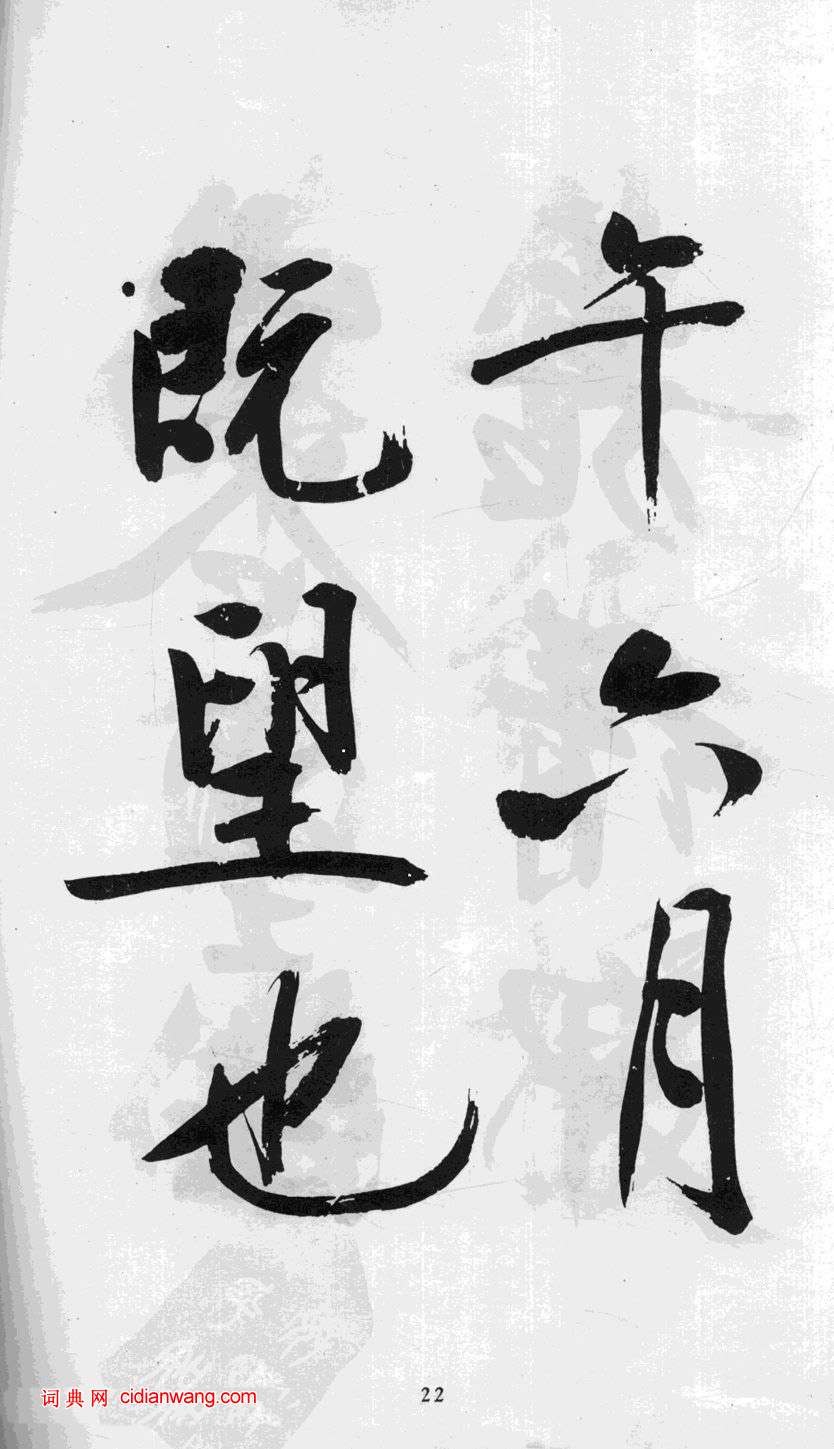 午六月
既望也
22
词典网 cidianwang.com